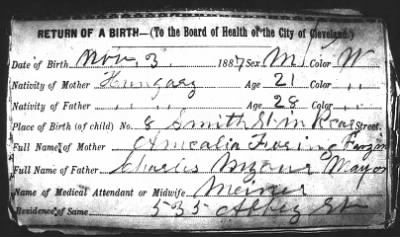 RETURN OF A BIRTH—(To the Board of Health of the City of Cleveland.)
Date of Birth Nov 3. 1887 Sex M Color W
Nativity of Mother Hungary Age 21 Color " "
Nativity of Father " " " Age 28 Color " "
Place of Birth (of child) No. 8 Smith St in Rear Street.
Full Name of Mother Amealia
Full Name of Father Charles
Name of Medical Attendant or Midwife Meiner
Residence of Same 535 Abbey St